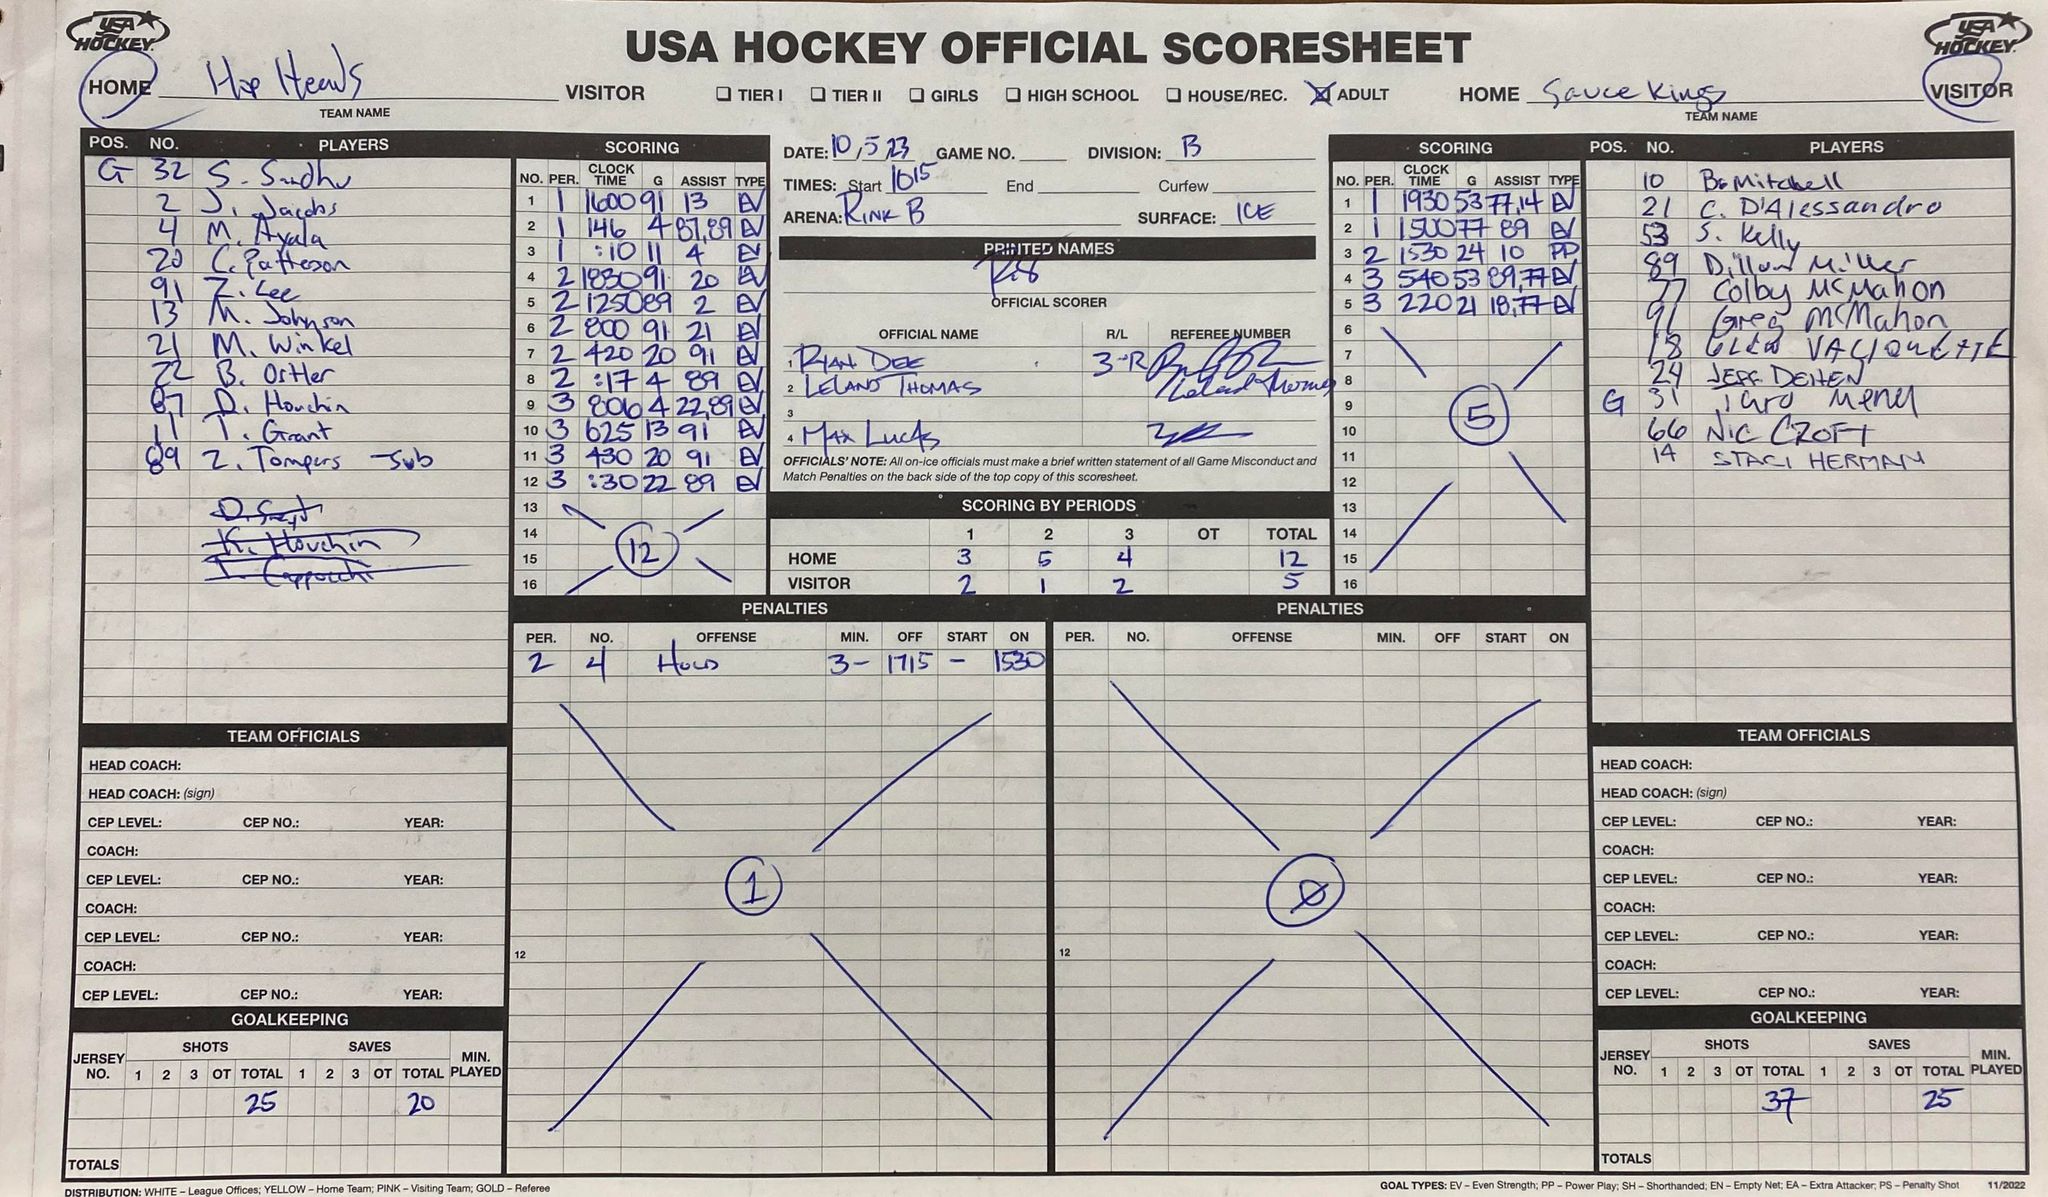 USA HOCKEY
USA HOCKEY OFFICIAL SCORESHEET
USA HOCKEY
HOME Hop Heads VISITOR
TEAM NAME
☐ TIER I ☐ TIER II ☐ GIRLS ☐ HIGH SCHOOL ☐ HOUSE/REC. ☒ ADULT
HOME Sauce Kings VISITOR
TEAM NAME
POS. NO. PLAYERS
G 32 S. Sandhu
2 J. Jacobs
4 M. Ayala
20 C. Patteson
91 Z. Lee
13 M. Johnson
21 M. Winkel
22 B. Ostler
87 D. Houchin
11 T. Grant
89 Z. Tompers - Sub
K. Houchin
SCORING
NO. PER. CLOCK TIME G ASSIST TYPE
1 1 1600 91 13 EV
2 1 146 4 87,89 EV
3 1 :10 11 4 EV
4 2 1830 91 20 EV
5 2 1250 89 2 EV
6 2 800 91 21 EV
7 2 420 20 91 EV
8 2 :17 4 89 EV
9 3 806 4 22,89 EV
10 3 625 13 91 EV
11 3 430 20 91 EV
12 3 :30 22 89 EV
13
14
15
16
12
DATE: 10,5,23 GAME NO. DIVISION: B
TIMES: Start 1015 End Curfew
ARENA: RINK B SURFACE: ICE
PRINTED NAMES
OFFICIAL SCORER
OFFICIAL NAME R/L REFEREE NUMBER
1 RYAN DEE 3-R
2 LELAND THOMAS Leland Thomas
3
4 MAX LUCAS
OFFICIALS' NOTE: All on-ice officials must make a brief written statement of all Game Misconduct and
Match Penalties on the back side of the top copy of this scoresheet.
SCORING BY PERIODS
1 2 3 OT TOTAL
HOME 3 5 4 12
VISITOR 2 1 2 5
SCORING
NO. PER. CLOCK TIME G ASSIST TYPE
1 1 1930 53 77,14 EV
2 1 1500 77 89 EV
3 2 1530 24 10 PP
4 3 540 53 89,77 EV
5 3 220 21 18,77 EV
6
7
8
9
10
11
12
13
14
15
16
5
POS. NO. PLAYERS
10 B. Mitchell
21 C. D'Alessandro
53 S. Kelly
89 Dillon Miller
77 Colby McMahon
91 Greg McMahon
18 GLEN VALIQUETTE
24 JEFF DEHEN
G 31 Taro
66 NIC CROFT
14 STACI HERMAN
PENALTIES
PER. NO. OFFENSE MIN. OFF START ON
2 4 Hold 3- 1715 - 1530
1
12
PENALTIES
PER. NO. OFFENSE MIN. OFF START ON
0
12
TEAM OFFICIALS
HEAD COACH:
HEAD COACH: (sign)
CEP LEVEL: CEP NO.: YEAR:
COACH:
CEP LEVEL: CEP NO.: YEAR:
COACH:
CEP LEVEL: CEP NO.: YEAR:
COACH:
CEP LEVEL: CEP NO.: YEAR:
GOALKEEPING
JERSEY NO. SHOTS SAVES MIN. PLAYED
1 2 3 OT TOTAL 1 2 3 OT TOTAL
25 20
TOTALS
TEAM OFFICIALS
HEAD COACH:
HEAD COACH: (sign)
CEP LEVEL: CEP NO.: YEAR:
COACH:
CEP LEVEL: CEP NO.: YEAR:
COACH:
CEP LEVEL: CEP NO.: YEAR:
COACH:
CEP LEVEL: CEP NO.: YEAR:
GOALKEEPING
JERSEY NO. SHOTS SAVES MIN. PLAYED
1 2 3 OT TOTAL 1 2 3 OT TOTAL
37 25
TOTALS
DISTRIBUTION: WHITE – League Offices; YELLOW – Home Team; PINK – Visiting Team; GOLD – Referee
GOAL TYPES: EV – Even Strength; PP – Power Play; SH – Shorthanded; EN – Empty Net; EA – Extra Attacker; PS – Penalty Shot 11/2022